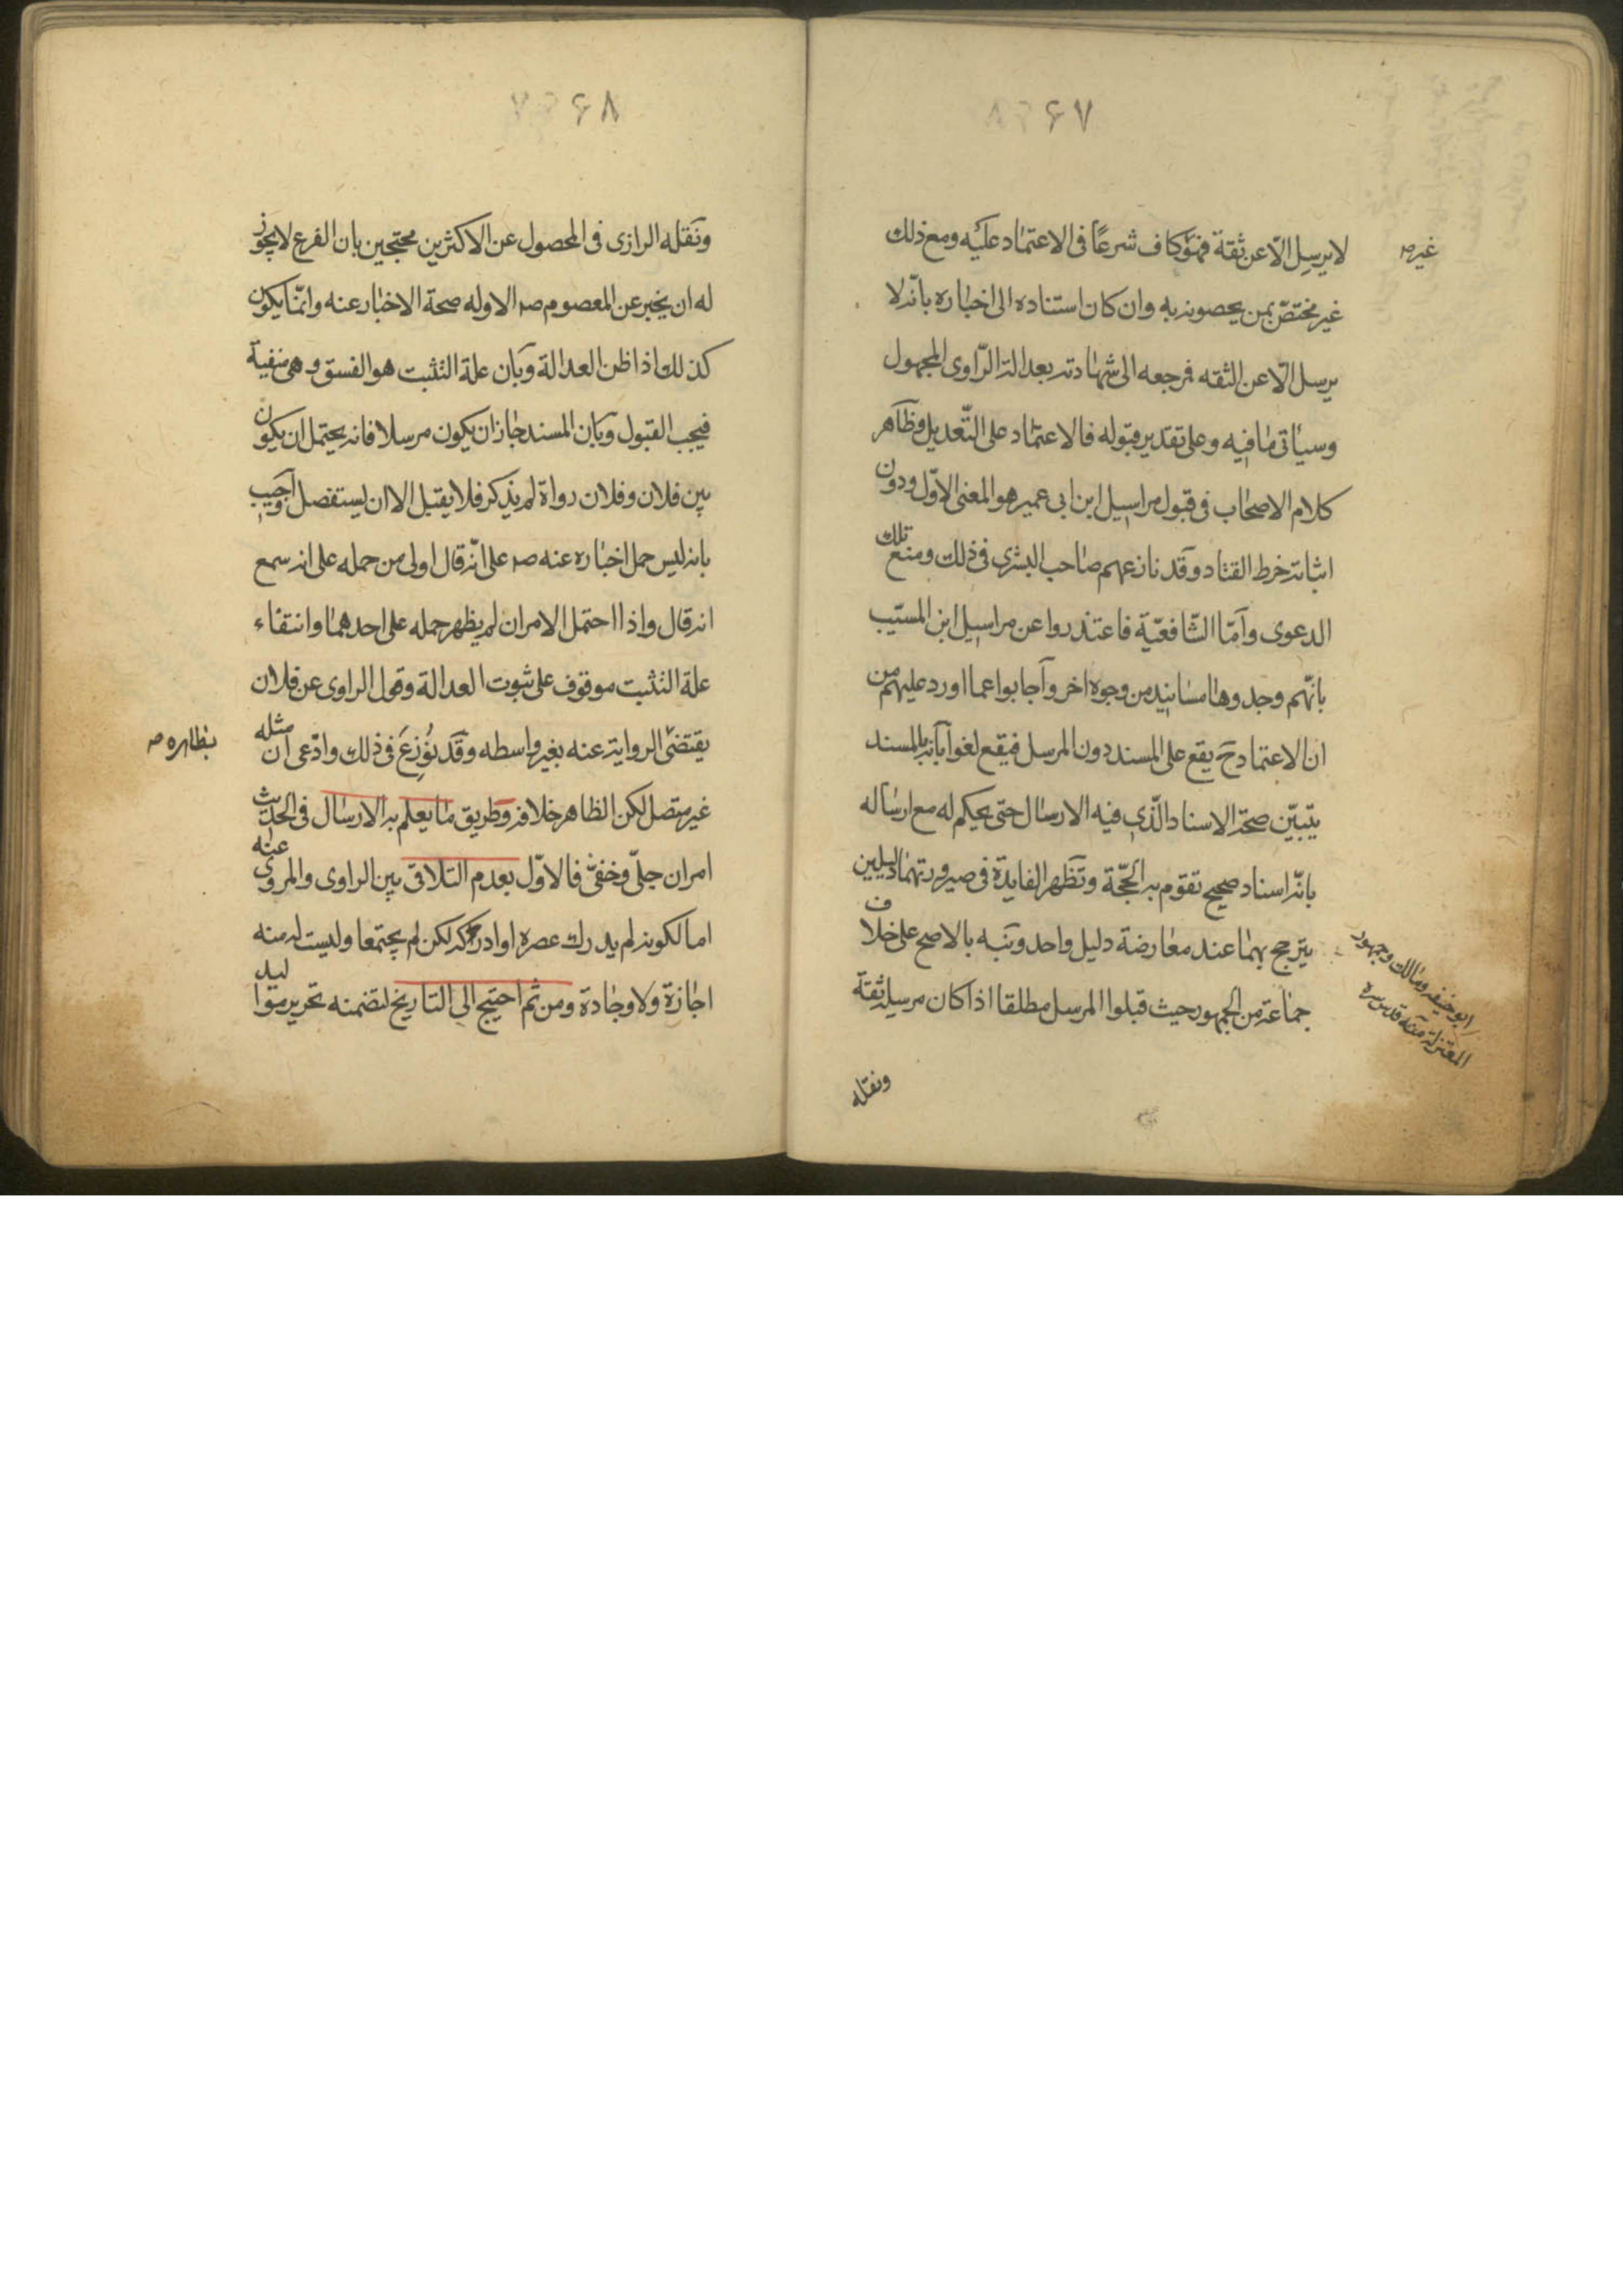 ۶۷
لا يرسل الّا عن ثقة فهو كاف شرعًا فى الاعتماد عليه ومع ذلك
غير مختصّ بمن يخصونه به وان كان استناده الى اخباره بانّه لا
يرسل الّا عن الثقه فمرجعه الى شهادته بعدالة الرّاوى المجهول
وسيأتى ما فيه وعلى تقدير قبوله فالاعتماد على التّعديل وظاهر
كلام الاصحاب فى قبول مراسيل ابن ابى عمير هو المعنى الاوّل ودون
اثباته خرط القتاد وقد نازعهم صاحب البشرى فى ذلك ومنع تلك
الدعوى وامّا الشّافعيّة فاعتذروا عن مراسيل ابن المسيّب
بانّهم وجدوها مسانيد من وجوه اخر واجابوا عما اورد عليهم من
ان الاعتماد ح يقع على المسند دون المرسل فيقع لغوا بانه بالمسند
يتبيّن صحّة الاسناد الّذى فيه الارسال حتى يحكم له مع ارساله
بانّه اسناد صحيح تقوم به الحجّة وتظهر الفايدة فى صيرورتهما دليلين
يترجح بهما عند معارضة دليل واحد ونبّه بالاصح على خلاف
جماعة من الجمهور حيث قبلوا المرسل مطلقا اذا كان مرسله ثقة
ونقله
غيره
ابو حنيفه ومالك وجمهور
المعتزلة منه قدس سره
۶۸
ونقله الرازى فى المحصول عن الاكثرين محتجين بان الفرع لا يجوز
له ان يخبر عن المعصوم صم الا وله صحة الاخبار عنه وانّما يكون
كذلك اذا ظن العدالة وبان علة التثبت هو الفسق وهى منفية
فيجب القبول وبان المسند جاز ان يكون مرسلا فانه يحتمل ان يكون
بين فلان وفلان رواة لم يذكر فلا يقبل الا ان يستفصل واجيب
بانه ليس حمل اخباره عنه صم على انّه قال اولى من حمله على انه سمع
انه قال واذا احتمل الامران لم يظهر حمله على احدهما وانتفاء
علة التثبت موقوف على ثبوت العدالة وقول الراوى عن فلان
يقتضى الرواية عنه بغير واسطه وقد نوزع فى ذلك وادّعى ان مثله
غير متصل لكن الظاهر خلافه وطريق ما يعلم به الارسال فى الحديث
امران جلىّ وخفىّ فالاوّل بعدم التلاقى بين الراوى والمروى عنه
اما لكونه لم يدرك عصره او ادركه لكن لم يجتمعا وليست له منه
اجازة ولا وجادة ومن ثم احتيج الى التاريخ لتضمنه تحرير مواليد
بظاهره